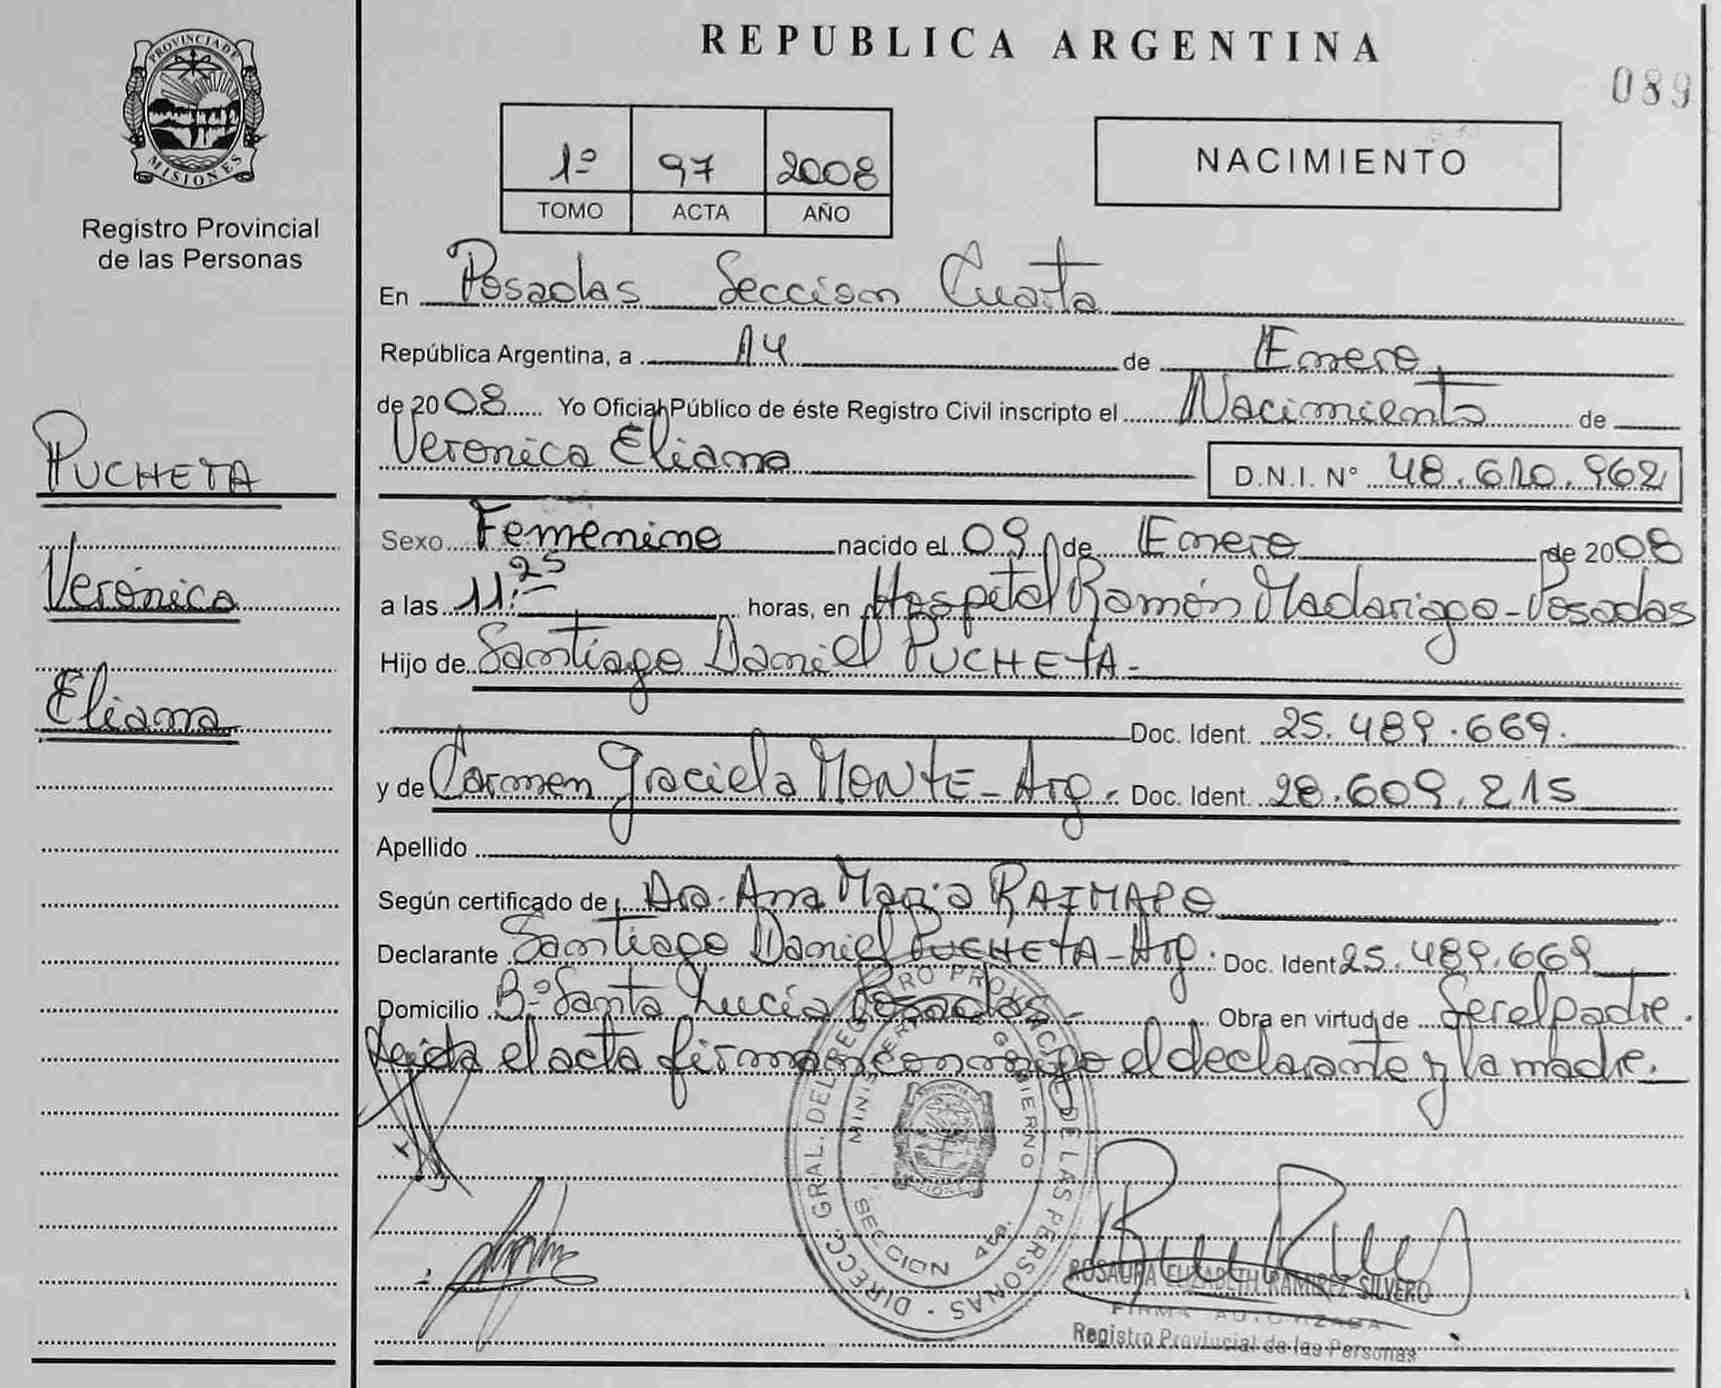 PROVINCIA DE
MISIONES
Registro Provincial
de las Personas
PUCHETA
Verónica
Eliana
REPUBLICA ARGENTINA
089
1º 97 2008
TOMO ACTA AÑO
NACIMIENTO
En Posadas Seccion Cuarta
República Argentina, a 14 de Enero
de 2008 Yo Oficial Público de éste Registro Civil inscripto el Nacimiento de
Veronica Eliana D.N.I. N° 48.610.962
Sexo Femenino nacido el 09 de Enero de 2008
a las 11:25 horas, en Hospital Ramón Madariaga - Posadas
Hijo de Santiago Daniel PUCHETA -
Doc. Ident. 25.489.669.
y de Carmen Graciela MONTE - Arg. Doc. Ident. 28.609.215
Apellido
Según certificado de Dra. Ana Maria
Declarante Santiago Daniel PUCHETA - Arg. Doc. Ident 25.489.669
Domicilio Bº Santa Lucía Posadas - Obra en virtud de ser el padre.
Leida el acta firman conmigo el declarante y la madre.
DIRECC. GRAL. DEL REGISTRO PROVINCIAL DE LAS PERSONAS
MINISTERIO GOBIERNO
SECCION 4ta.
ROSAURA ELIZABETH RAMIREZ SILVERO
FIRMA AUTORIZADA
Registro Provincial de las Personas